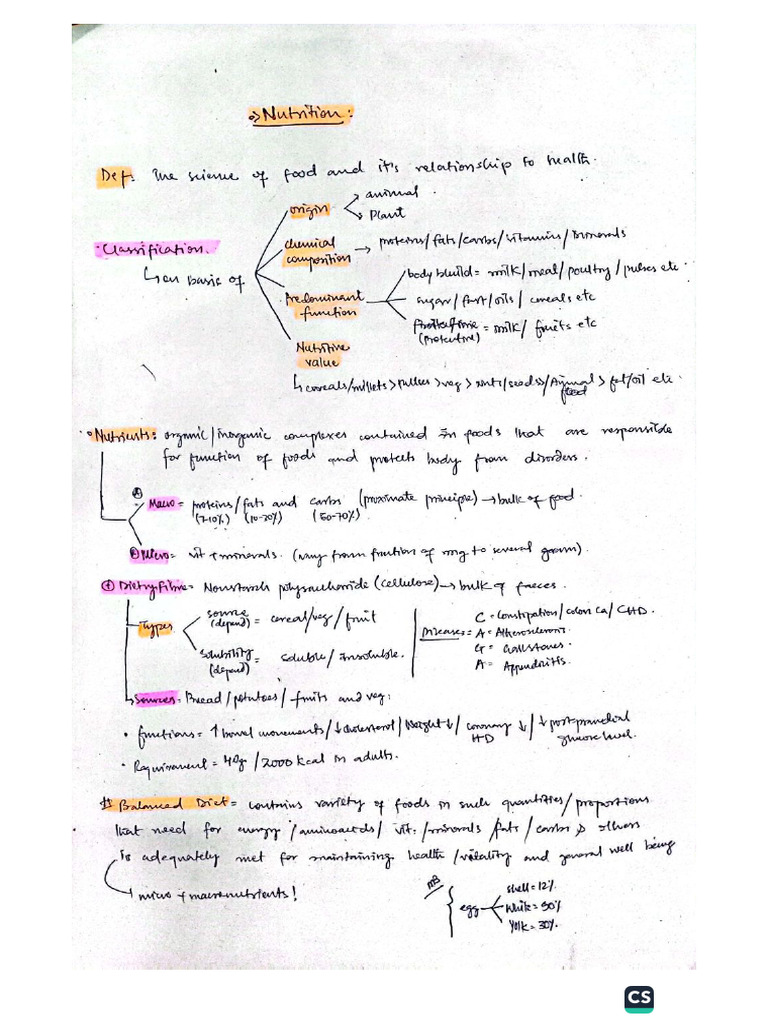 ⇒ Nutrition:
Def: The science of food and it's relationship to health.
• Classification.
↳ on basis of
origin → animal.
→ Plant
chemical composition → proteins/fats/carbs/vitamins/minerals
Predominant function
body build = milk/meal/poultry/pulses etc.
sugar/fat/oils/cereals etc
(Protective) = milk/fruits etc
Nutritive value
↳ cereals/millets > pulses > veg > nuts/seeds > Animal food > fat/oil etc.
• Nutrients: organic/inorganic complexes contained in foods that are responsible
for function of foods and protects body from disorders.
Ⓐ Macro = proteins/fats and carbs (proximate principle) → bulk of food.
(7-10%) (10-20%) (50-70%)
Micro = vit + minerals. (vary from fraction of mg to several gram).
⊕ Dietry Fibre = Nonstarch polysaccharide (cellulose) → bulk of faeces.
Types
source (depend) = cereal/veg/fruit
solubility (depend) = soluble/insoluble.
Disease = C = constipation/colon Ca/CHD.
A = Atherosclerosis.
G = Gallstones.
A = Appendicitis.
↳ Sources = Bread/potatoes/fruits and veg:
• functions = ↑ bowel movements/↓ cholesterol/weight ↓/coronary HD ↓/↓ postprandial glucose level.
• Requirement = 40g/2000 kcal in adults.
# Balanced Diet = contains variety of foods in such quantities/proportions
that need for energy/aminoacids/vit./minerals/fats/carbs & others
is adequately met for maintaining health/vitality and general well being
→ micro + macronutrients!
egg
shell = 12%.
White = 50%
Yolk = 30%.
CS